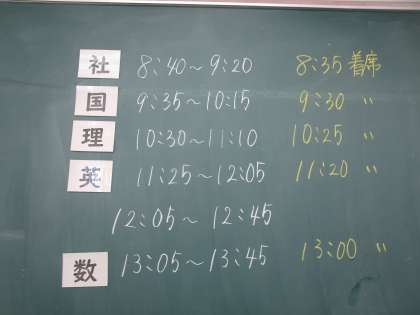 社 8:40〜9:20 8:35 着席
国 9:35〜10:15 9:30 〃
理 10:30〜11:10 10:25 〃
英 11:25〜12:05 11:20 〃
12:05〜12:45
数 13:05〜13:45 13:00 〃